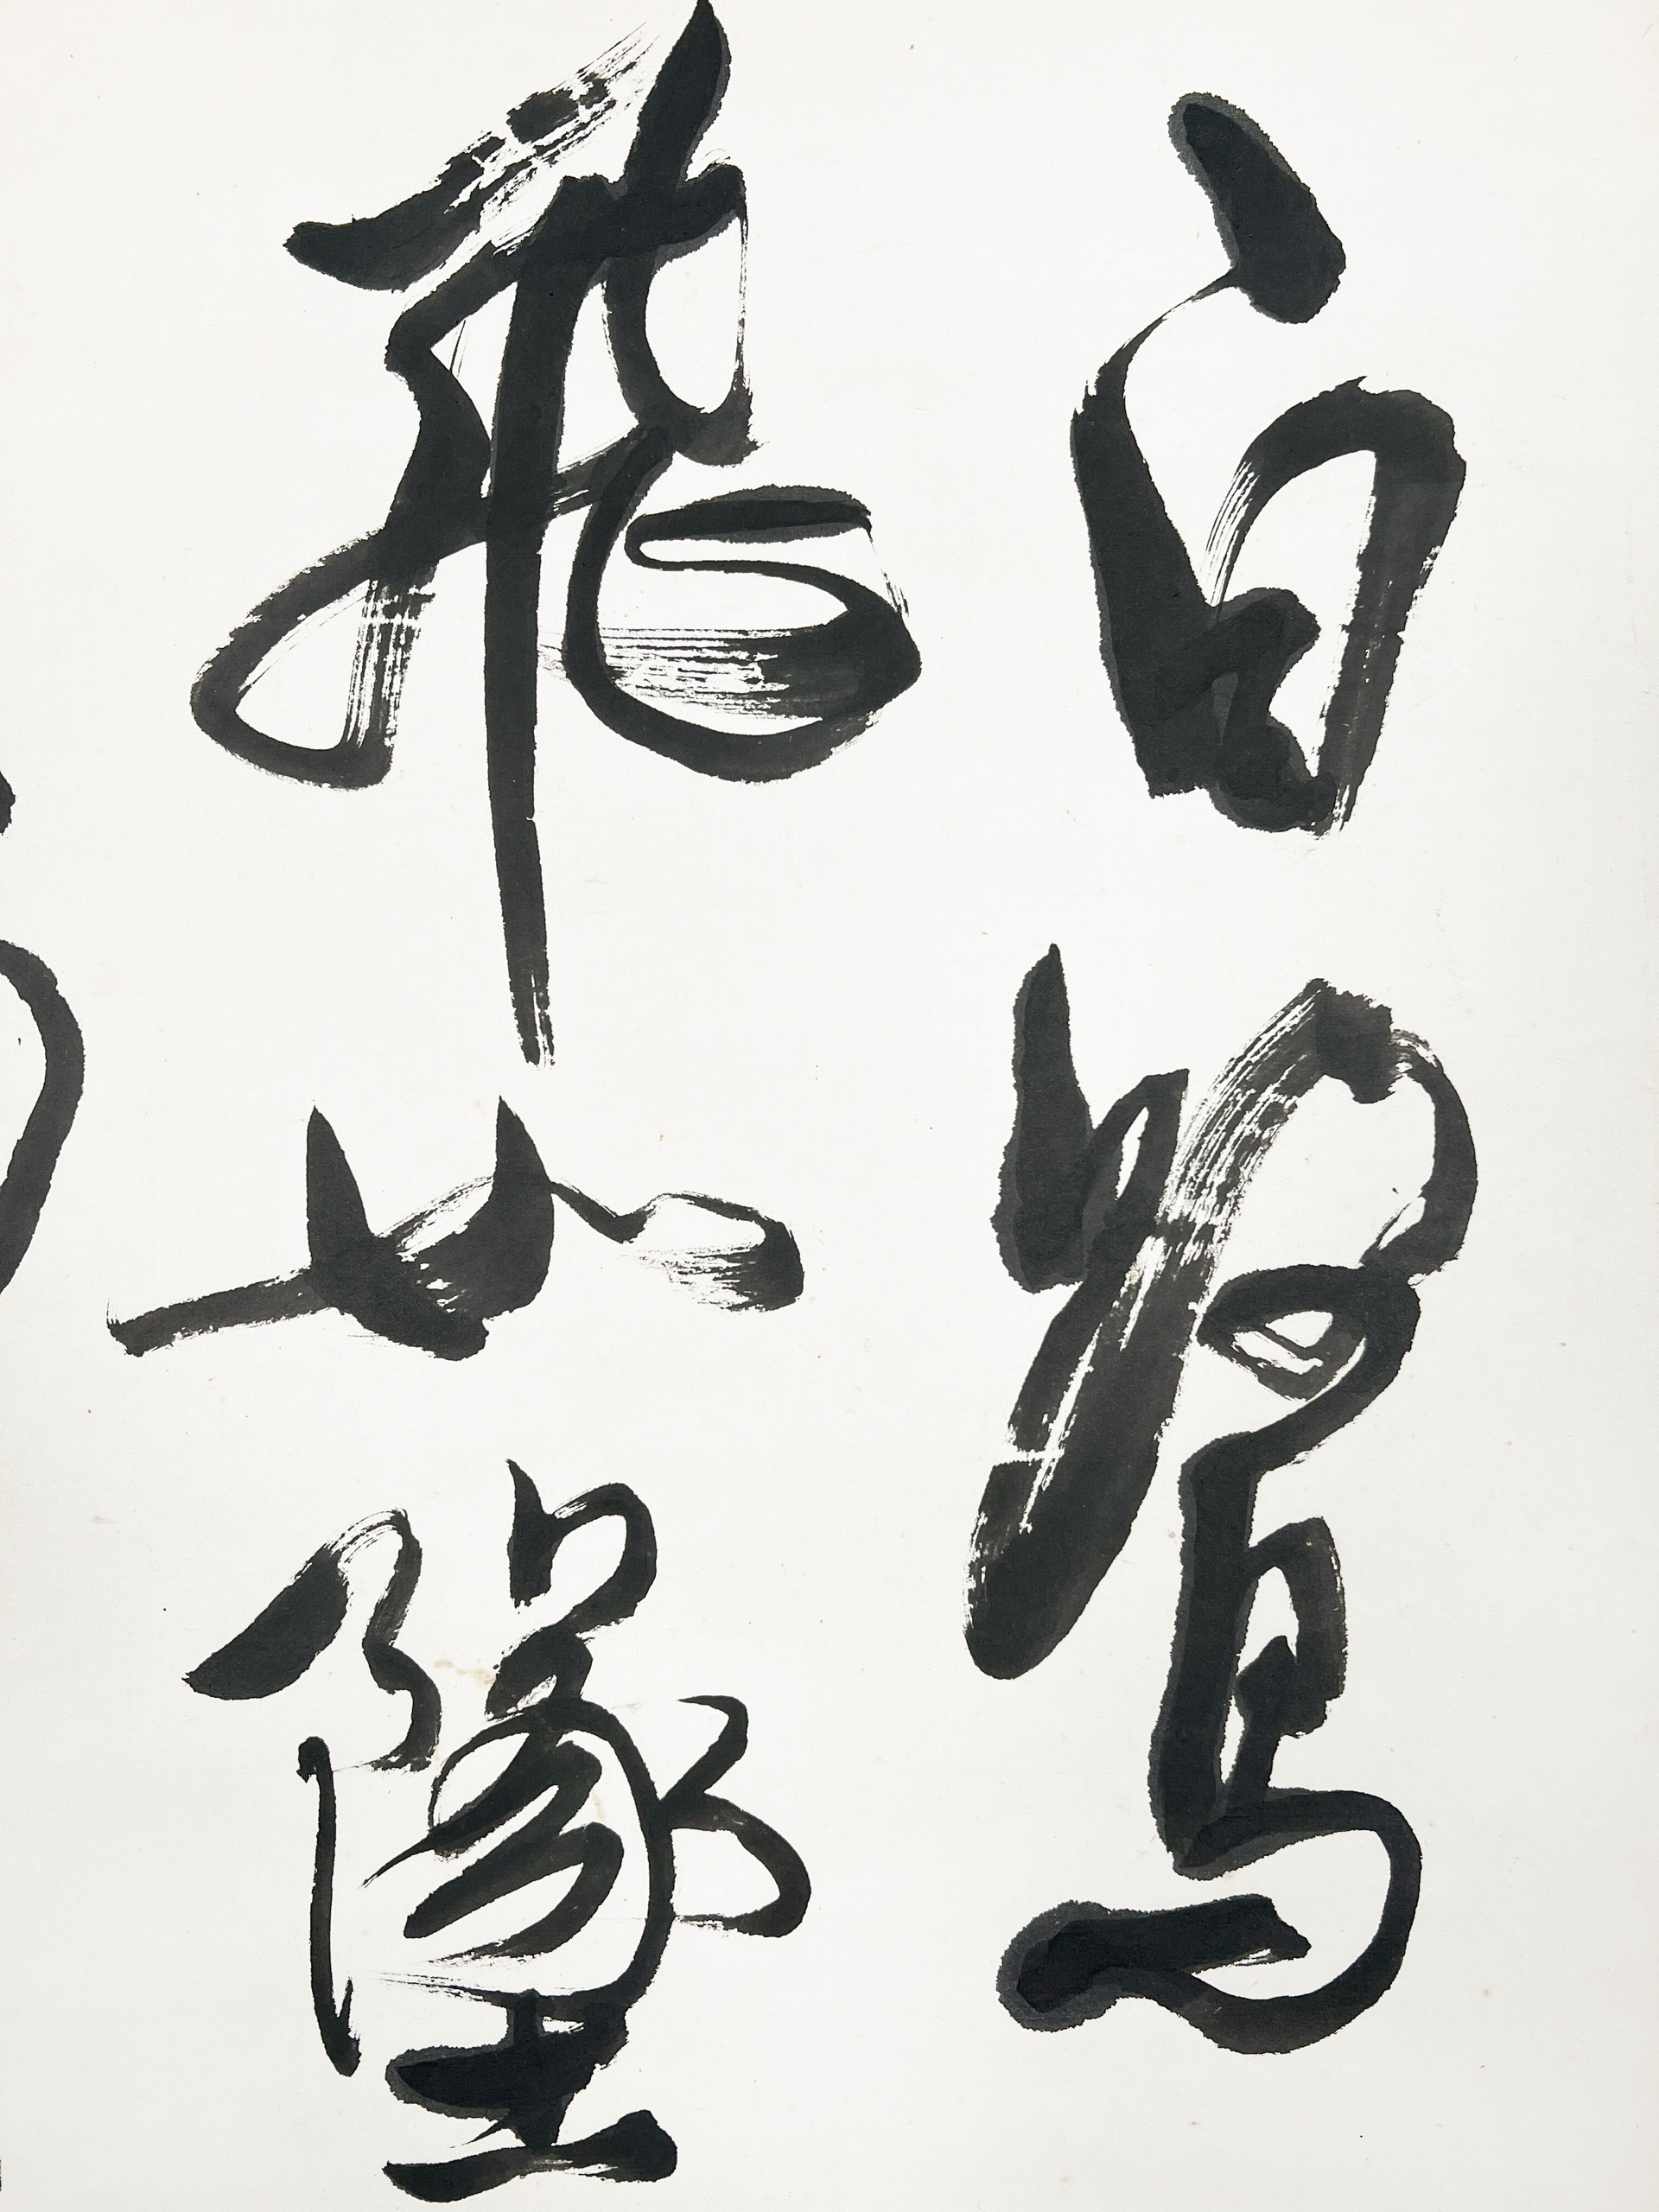 白鷺
飛如墜